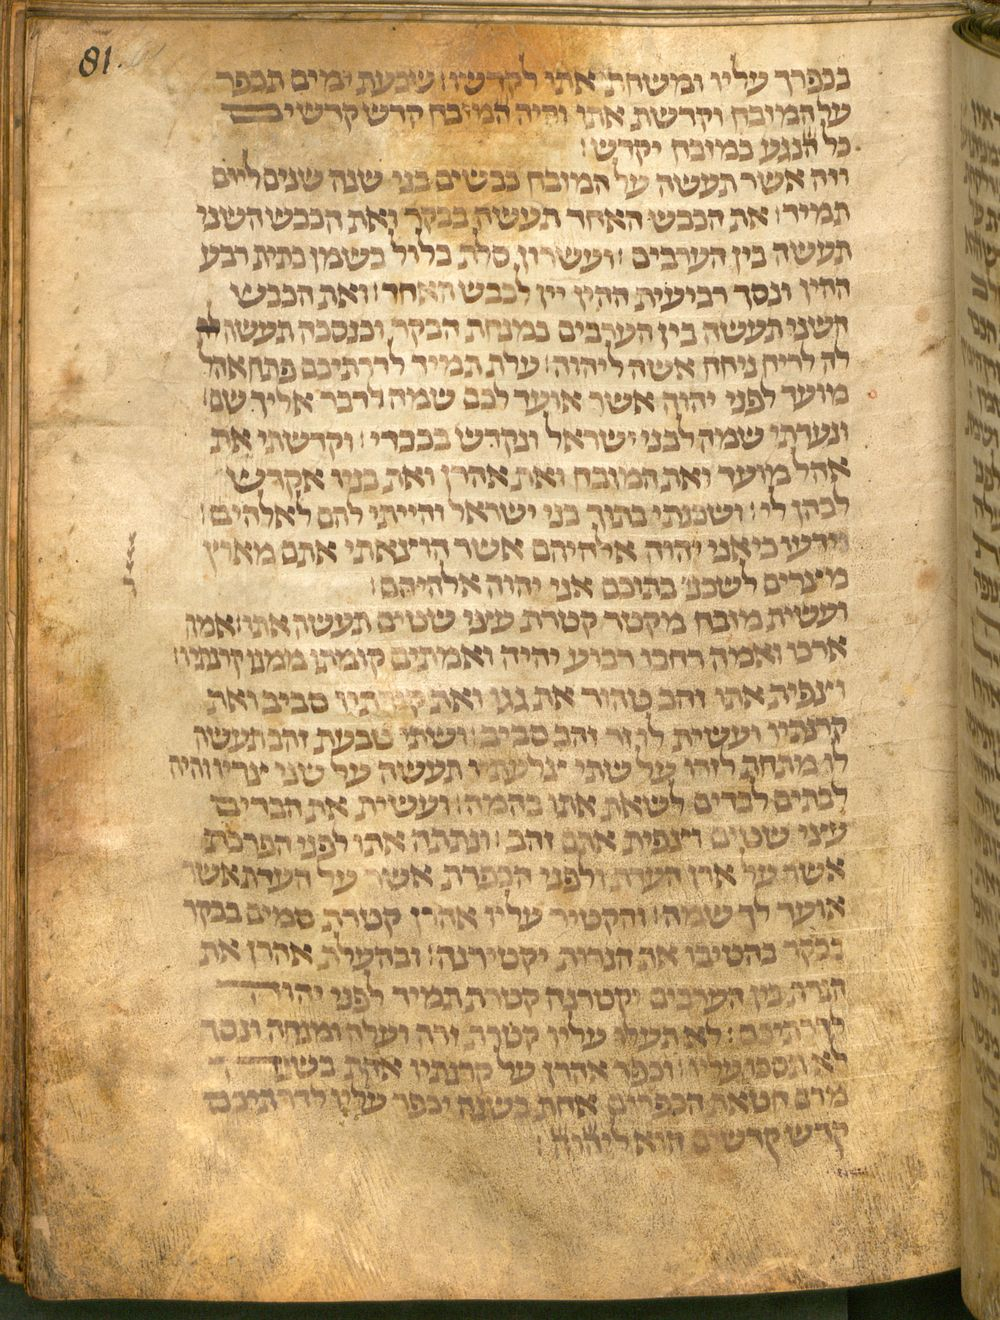 81.
בכפרך עליו ומשחת אתו לקדשו׃ שבעת ימים תכפר
על המזבח וקדשת אתו והיה המזבח קדש קדשים
כל הנגע במזבח יקדש׃
וזה אשר תעשה על המזבח כבשים בני שנה שנים ליום
תמיד׃ את הכבש האחד תעשה בבקר ואת הכבש השני
תעשה בין הערבים׃ ועשרון סלת בלול בשמן כתית רבע
ההין ונסך רביעית ההין יין לכבש האחד׃ ואת הכבש
השני תעשה בין הערבים כמנחת הבקר וכנסכה תעשה
לה לריח ניחח אשה ליהוה׃ עלת תמיד לדרתיכם פתח אהל
מועד לפני יהוה אשר אועד לכם שמה לדבר אליך שם׃
ונעדתי שמה לבני ישראל ונקדש בכבדי׃ וקדשתי את
אהל מועד ואת המזבח ואת אהרן ואת בניו אקדש
לכהן לי׃ ושכנתי בתוך בני ישראל והייתי להם לאלהים׃
וידעו כי אני יהוה אלהיהם אשר הוצאתי אתם מארץ
מצרים לשכני בתוכם אני יהוה אלהיהם׃
ועשית מזבח מקטר קטרת עצי שטים תעשה אתו׃ אמה
ארכו ואמה רחבו רבוע יהיה ואמתים קומתו ממנו קרנתיו׃
וצפית אתו זהב טהור את גגו ואת קירתיו סביב ואת
קרנתיו ועשית לו זר זהב סביב׃ ושתי טבעת זהב תעשה
לו מתחת לזרו על שתי צלעתיו תעשה על שני צדיו והיה
לבתים לבדים לשאת אתו בהמה׃ ועשית את הבדים
עצי שטים וצפית אתם זהב׃ ונתתה אתו לפני הפרכת
אשר על ארן העדת לפני הכפרת אשר על העדת אשר
אועד לך שמה׃ והקטיר עליו אהרן קטרת סמים בבקר
בבקר בהטיבו את הנרות יקטירנה׃ ובהעלת אהרן את
הנרת בין הערבים יקטרנה קטרת תמיד לפני יהוה
לדרתיכם׃ לא תעלו עליו קטרת זרה ועלה ומנחה ונסך
לא תסכו עליו׃ וכפר אהרן על קרנתיו אחת בשנה
מדם חטאת הכפרים אחת בשנה יכפר עליו לדרתיכם
קדש קדשים הוא ליהוה׃